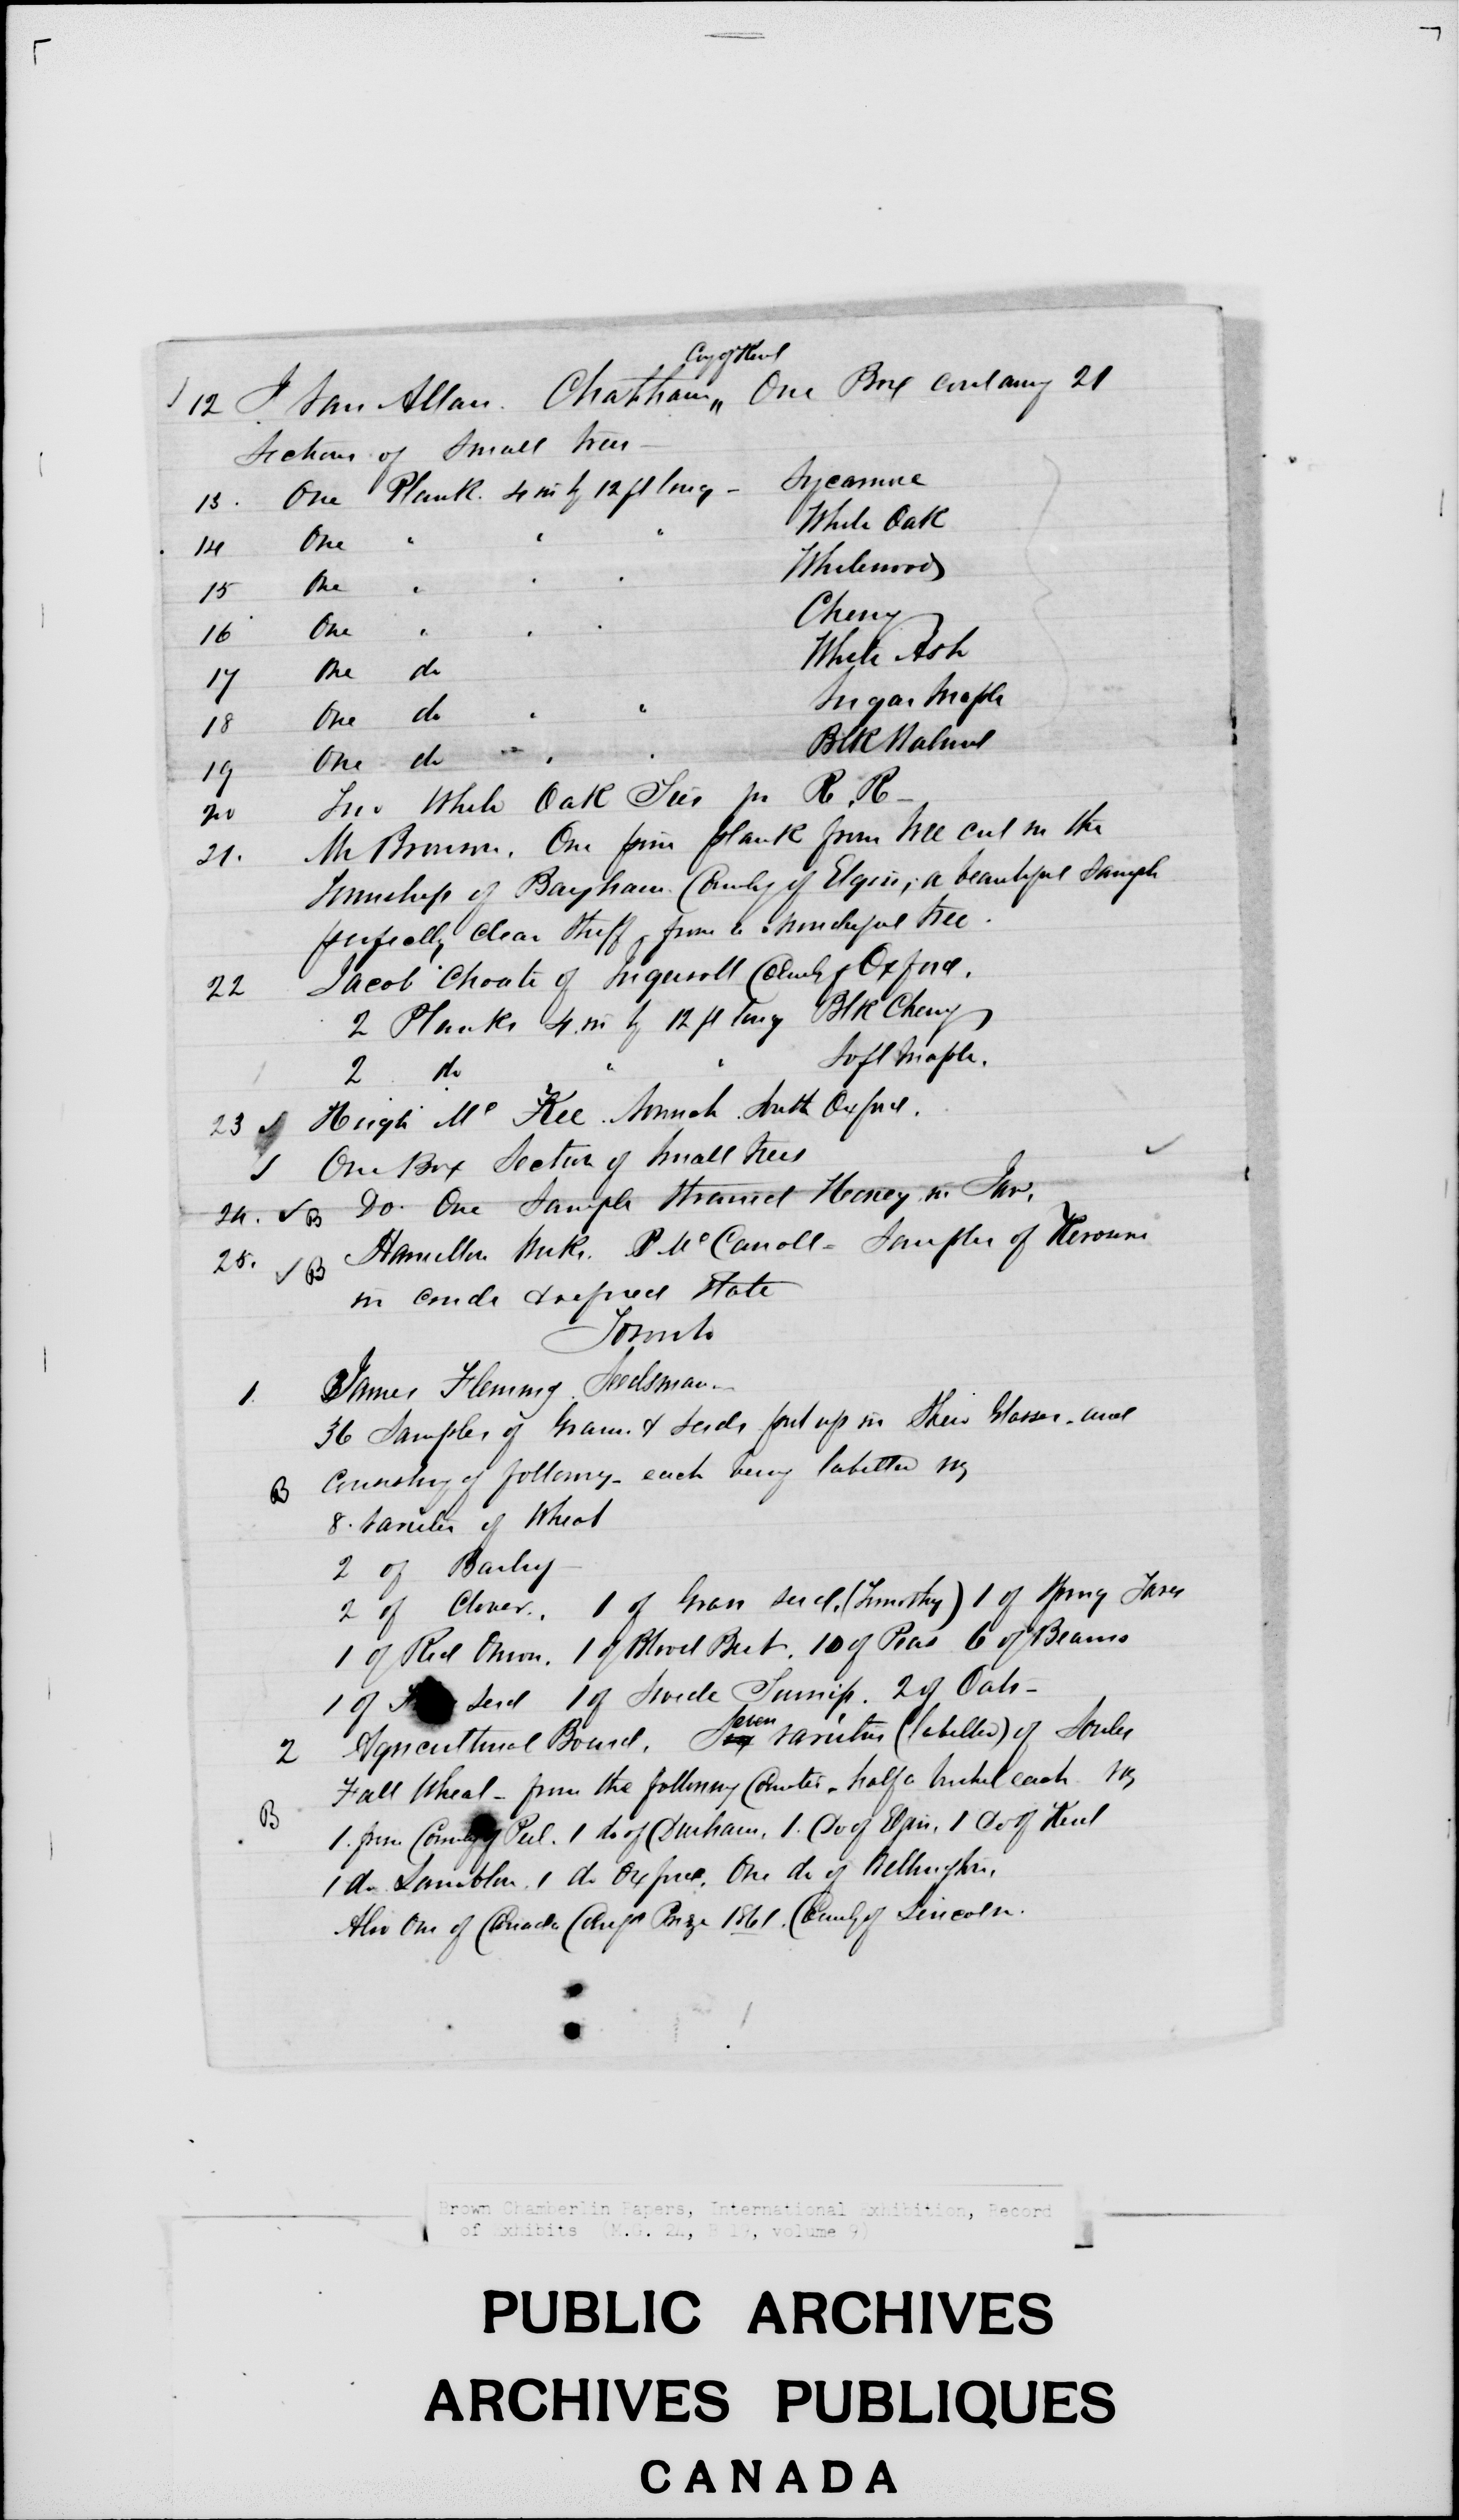 Cny of Kent
12 J Van Allan. Chatham " One Box containg 21
Sections of Small trees —
13. One Plank. 4 in by 12 ft long - Sycamore
14 One " " " White Oak
15 One " " " Whitewood
16 One " " " Cherry
17 One do White Ash
18 One do " " Sugar Maple
19 One do " " Blk Walnut
20 Two White Oak Ties for R. R —
21. Mr Bronson. One pine plank from tree cut in the
Township of Bayham County of Elgin, a beautiful Sample
perfectly clear stuff, from a wonderful tree.
22 Jacob Choate of Ingersoll County of Oxford.
2 Planks 4 in by 12 ft long Blk Cherry
2 do " " Soft Maple.
23 ✓ Hugh Mc Kee. Norwich South Oxford.
✓ One Box Section of Small trees ✓
24. ✓ B Do. One Sample Strained Honey in Jar.
25. ✓ B Hamilton Works. P McCarroll - Samples of Kerosene
in crude & refined State
Toronto
1. James Fleming Seedsman —
36 Samples of Grain & Seeds put up in Shew Glasses - and
B Consisting of following - each being labelled viz
8. varieties of Wheat
2 of Barley —
2 of Clover., 1 of Grass seed. (Timothy) 1 of Spring Tares
1 of Red Onion. 1 of Blood Beet. 10 of Peas 6 of Beans
1 of seed 1 of Swede Turnip. 2 of Oats —
2 Agricultural Board. Seven varieties (labelled) of Soules
Fall Wheat - from the following Counties - half a bushel each viz
B 1. from County of Peel. 1 do of Durham. 1. Do of Elgin. 1 Do of Kent
1 do Lambton. 1 do Oxford. One do of Wellington.
Also One of Canada Compy Prize 1861. County of Lincoln.
Brown Chamberlin Papers, International Exhibition, Record
of Exhibits (M.G. 24, B 19, volume 9)
PUBLIC ARCHIVES
ARCHIVES PUBLIQUES
CANADA